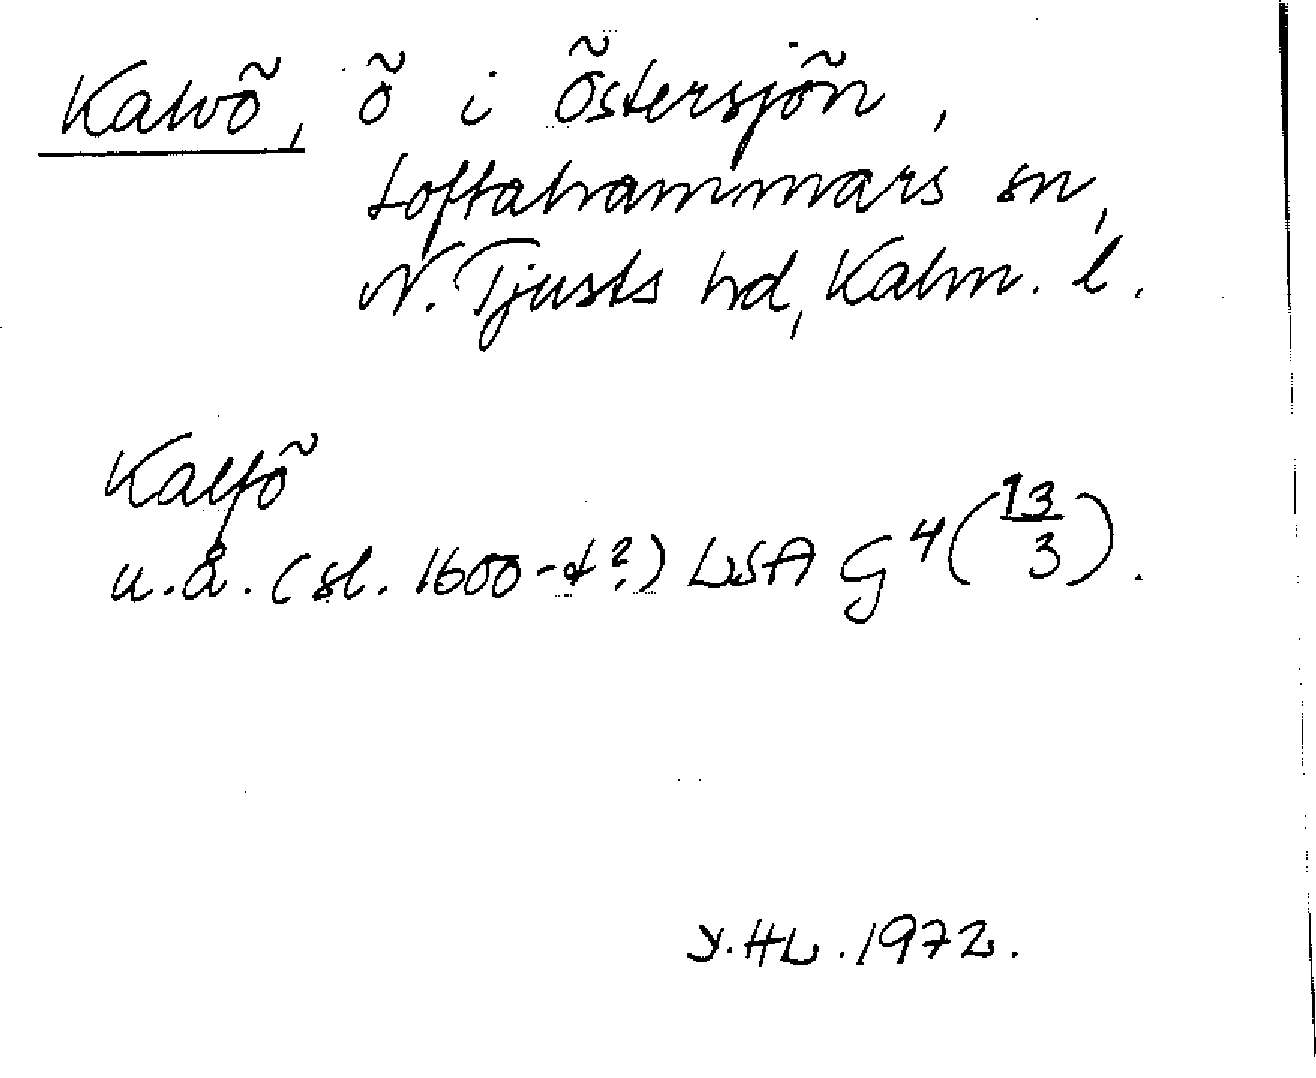 Kalvö, ö i Östersjön,
Loftahammars sn,
N. Tjusts hd, Kalm. l.
Kalfö
u.å. (sl. 1600-t?) LSA G⁴(13/3).
Y.HL.1972.